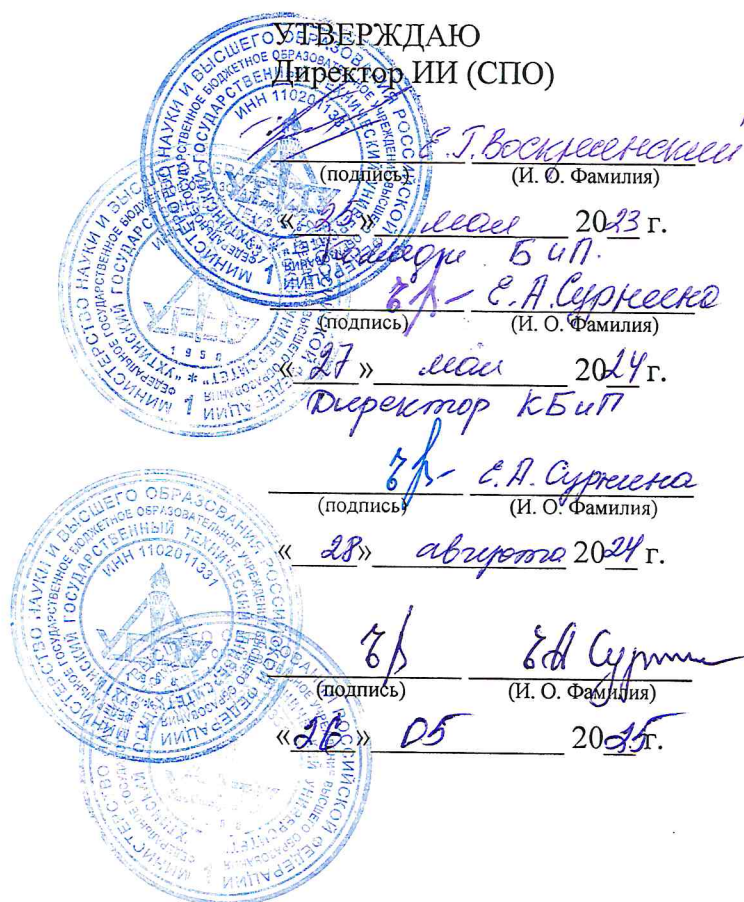 УТВЕРЖДАЮ
Директор ИИ (СПО)
Е. Г. Воскресенский
(подпись) (И. О. Фамилия)
«25» мая 2023 г.
БиП.
Е. А. Суркина
(подпись) (И. О. Фамилия)
«27» мая 2024 г.
Директор КБиП
Е. А. Суркина
(подпись) (И. О. Фамилия)
«28» августа 2024 г.
(подпись) (И. О. Фамилия)
«26» 05 2025 г.
МИНИСТЕРСТВО НАУКИ И ВЫСШЕГО ОБРАЗОВАНИЯ РОССИЙСКОЙ ФЕДЕРАЦИИ
ФЕДЕРАЛЬНОЕ ГОСУДАРСТВЕННОЕ БЮДЖЕТНОЕ ОБРАЗОВАТЕЛЬНОЕ УЧРЕЖДЕНИЕ ВЫСШЕГО ОБРАЗОВАНИЯ
"УХТИНСКИЙ ГОСУДАРСТВЕННЫЙ ТЕХНИЧЕСКИЙ УНИВЕРСИТЕТ"
ИНН 1102011331
1958
1